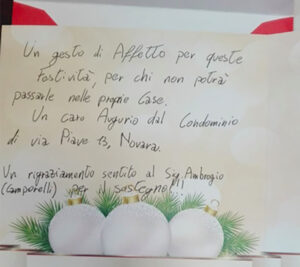 Un gesto di Affetto per queste
Festività, per chi non potrà
passarle nelle proprie Case.
Un caro Augurio dal Condominio
di via Piave 13, Novara.
Un rigraziamento sentito al Sig. Ambrogio
(Camporelli) per il sostegno!!!